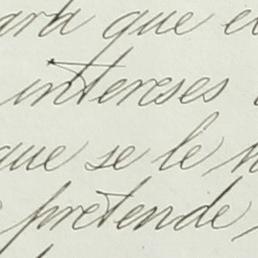 que
intereses
que se le
pretende